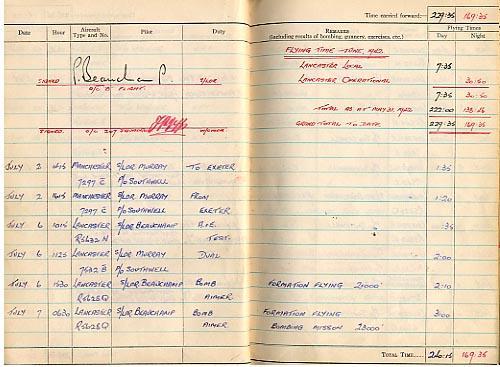 Time carried forward:— 229:35 169:35
Date Hour Aircraft Type and No. Pilot Duty REMARKS (including results of bombing, gunnery, exercises, etc.) Flying Times Day Night
FLYING TIME – JUNE, 1942.
LANCASTER LOCAL 7:35
SIGNED P. Beauchamp S/LDR LANCASTER OPERATIONAL 30:50
O/C B FLIGHT. 7:35 30:50
TOTAL AS AT MAY 31, 1942 222:00
GRAND TOTAL TO DATE. 229:35 169:35
SIGNED. O/C 207 SQUADRON
JULY 2 MANCHESTER S/LDR MURRAY TO EXETER 1:35
7297 C P/O SOUTHWELL
JULY 2 MANCHESTER S/LDR MURRAY FROM 1:20
7297 C P/O SOUTHWELL EXETER
JULY 6 1015 LANCASTER S/LDR BEAUCHAMP :35
R5632 N TEST.
JULY 6 1125 LANCASTER S/LDR MURRAY DUAL 2:00
B P/O SOUTHWELL
JULY 6 1530 LANCASTER S/LDR BEAUCHAMP BOMB FORMATION FLYING 2:10
R5628Q AIMER
JULY 7 0630 LANCASTER S/LDR BEAUCHAMP BOMB FORMATION FLYING 3:00
R5628Q AIMER BOMBING MISSION
TOTAL TIME.... 169:35